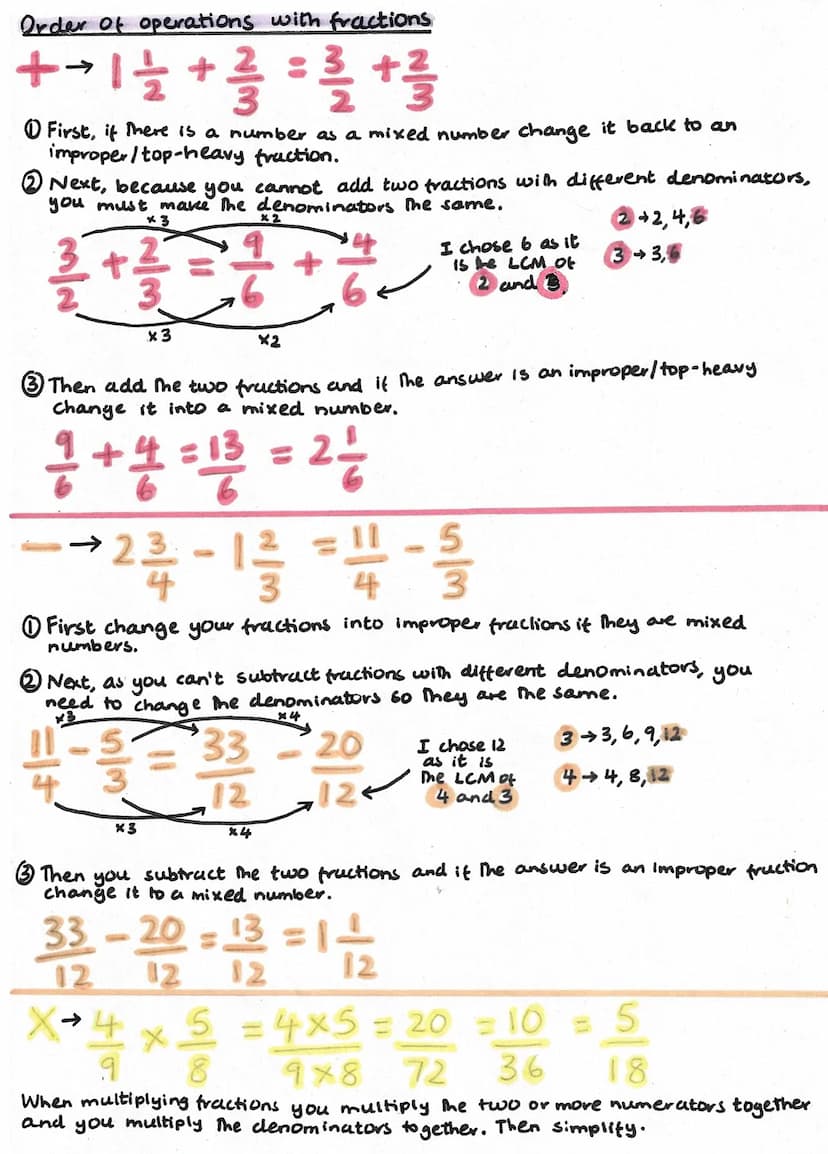 Order of operations with fractions
+ → 1 1/2 + 2/3 = 3/2 + 2/3
① First, if there is a number as a mixed number change it back to an
improper/top-heavy fraction.
② Next, because you cannot add two fractions with different denominators,
you must make the denominators the same.
×3 ×2
3/2 + 2/3 = 9/6 + 4/6
×3 ×2
I chose 6 as it
is the LCM of
2 and 3.
2 → 2, 4, 6
3 → 3, 6
③ Then add the two fractions and if the answer is an improper/top-heavy
change it into a mixed number.
9/6 + 4/6 = 13/6 = 2 1/6
− → 2 3/4 - 1 2/3 = 11/4 - 5/3
① First change your fractions into improper fractions if they are mixed
numbers.
② Next, as you can't subtract fractions with different denominators, you
need to change the denominators so they are the same.
×3 ×4
11/4 - 5/3 = 33/12 - 20/12
×3 ×4
I chose 12
as it is
the LCM of
4 and 3
3 → 3, 6, 9, 12
4 → 4, 8, 12
③ Then you subtract the two fractions and if the answer is an improper fraction
change it to a mixed number.
33/12 - 20/12 = 13/12 = 1 1/12
× → 4/9 × 5/8 = 4×5/9×8 = 20/72 = 10/36 = 5/18
When multiplying fractions you multiply the two or more numerators together
and you multiply the denominators together. Then simplify.